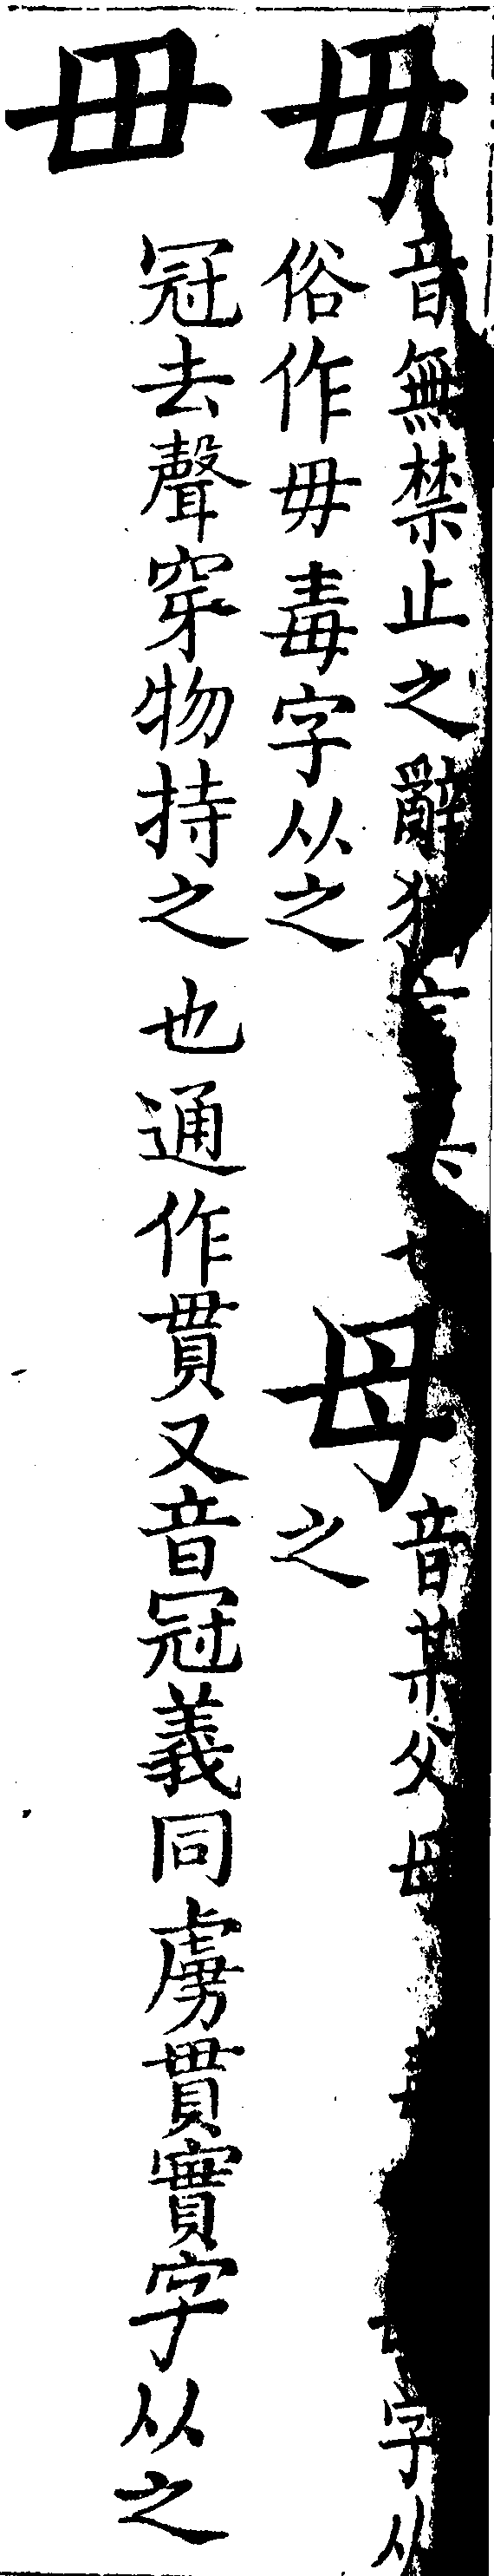 毋
音無禁止之辭
俗作毋毒字从之
母
音某父母
字从
之
毌
冠去聲穿物持之也通作貫又音冠義同虜貫實字从之